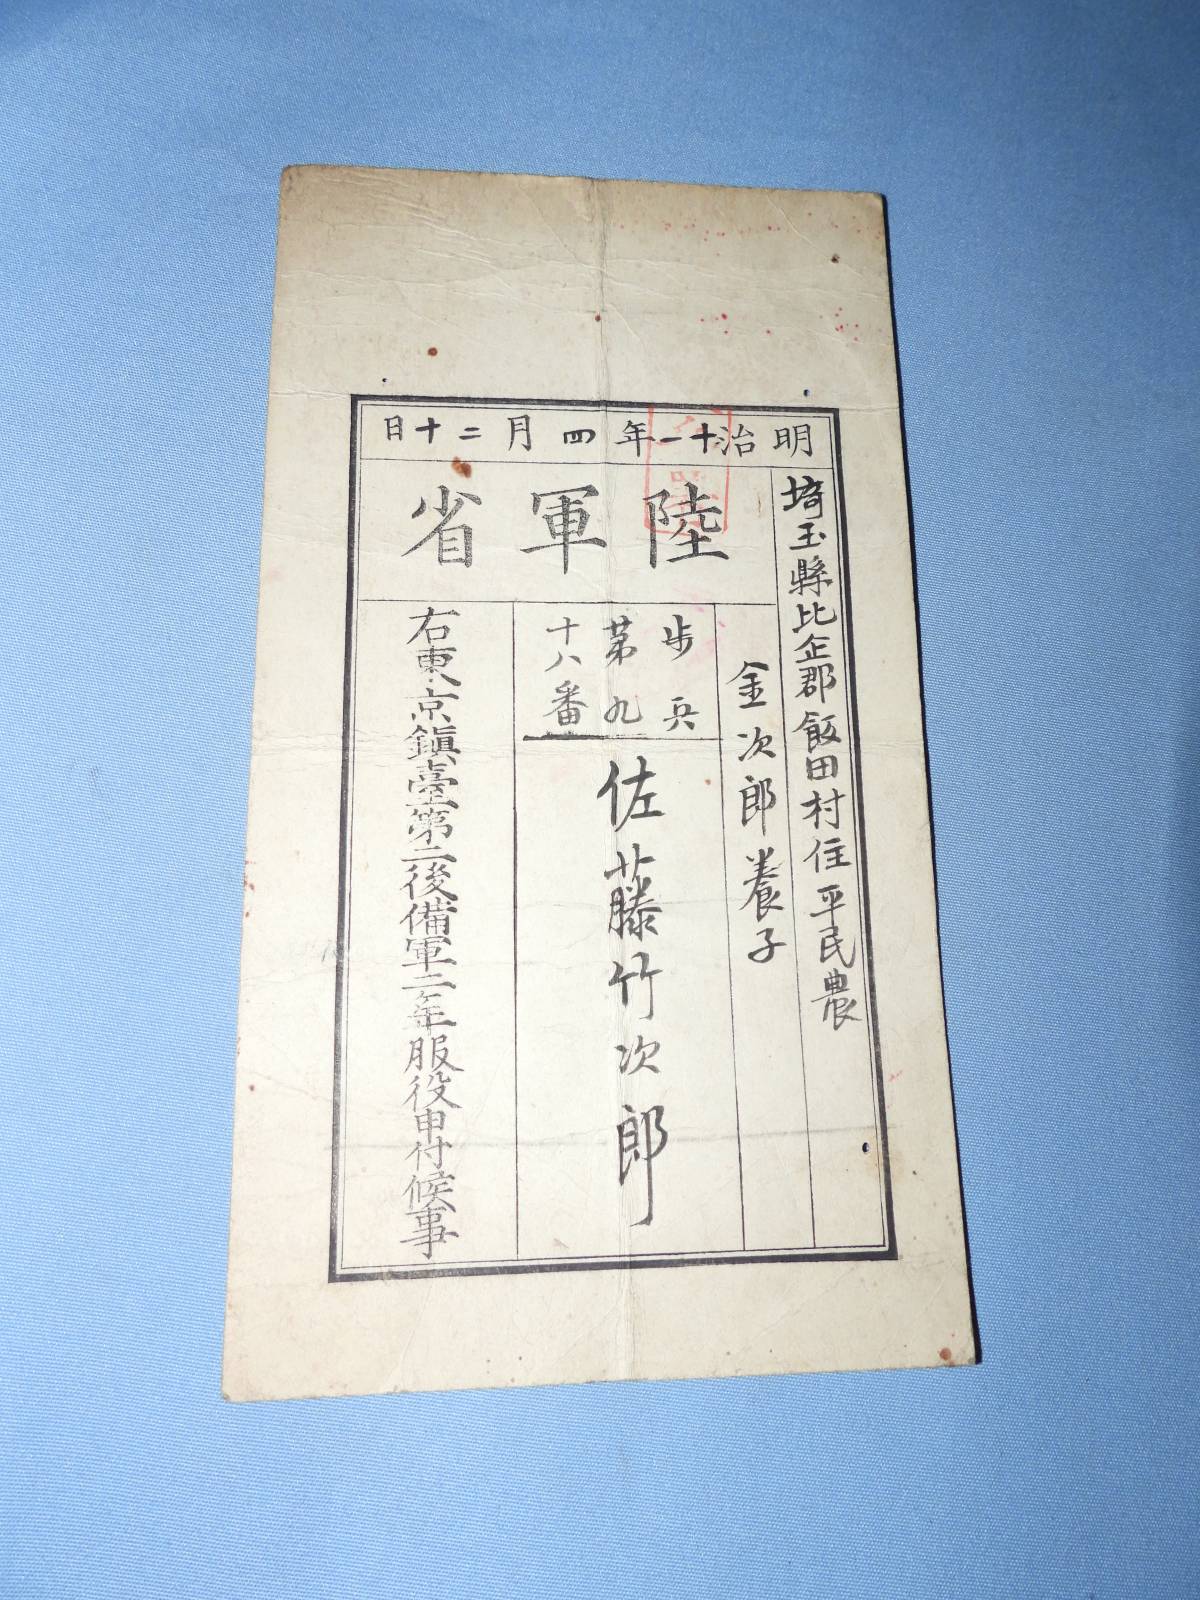 明治十一年四月二十日
陸軍省
埼玉縣比企郡飯田村住平民農
金次郎養子
歩兵
第九
十八番
佐藤竹次郎
右東京鎮臺第二後備軍二年服役申付候事